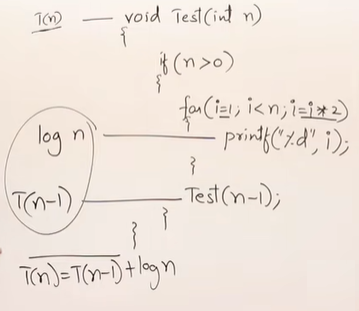 T(n) — void Test(int n)
{
if (n>0)
{
for(i=1; i<n; i=i*2)
{
log n — printf("%d", i);
}
T(n-1) — Test(n-1);
}
}
T(n)=T(n-1)+log n